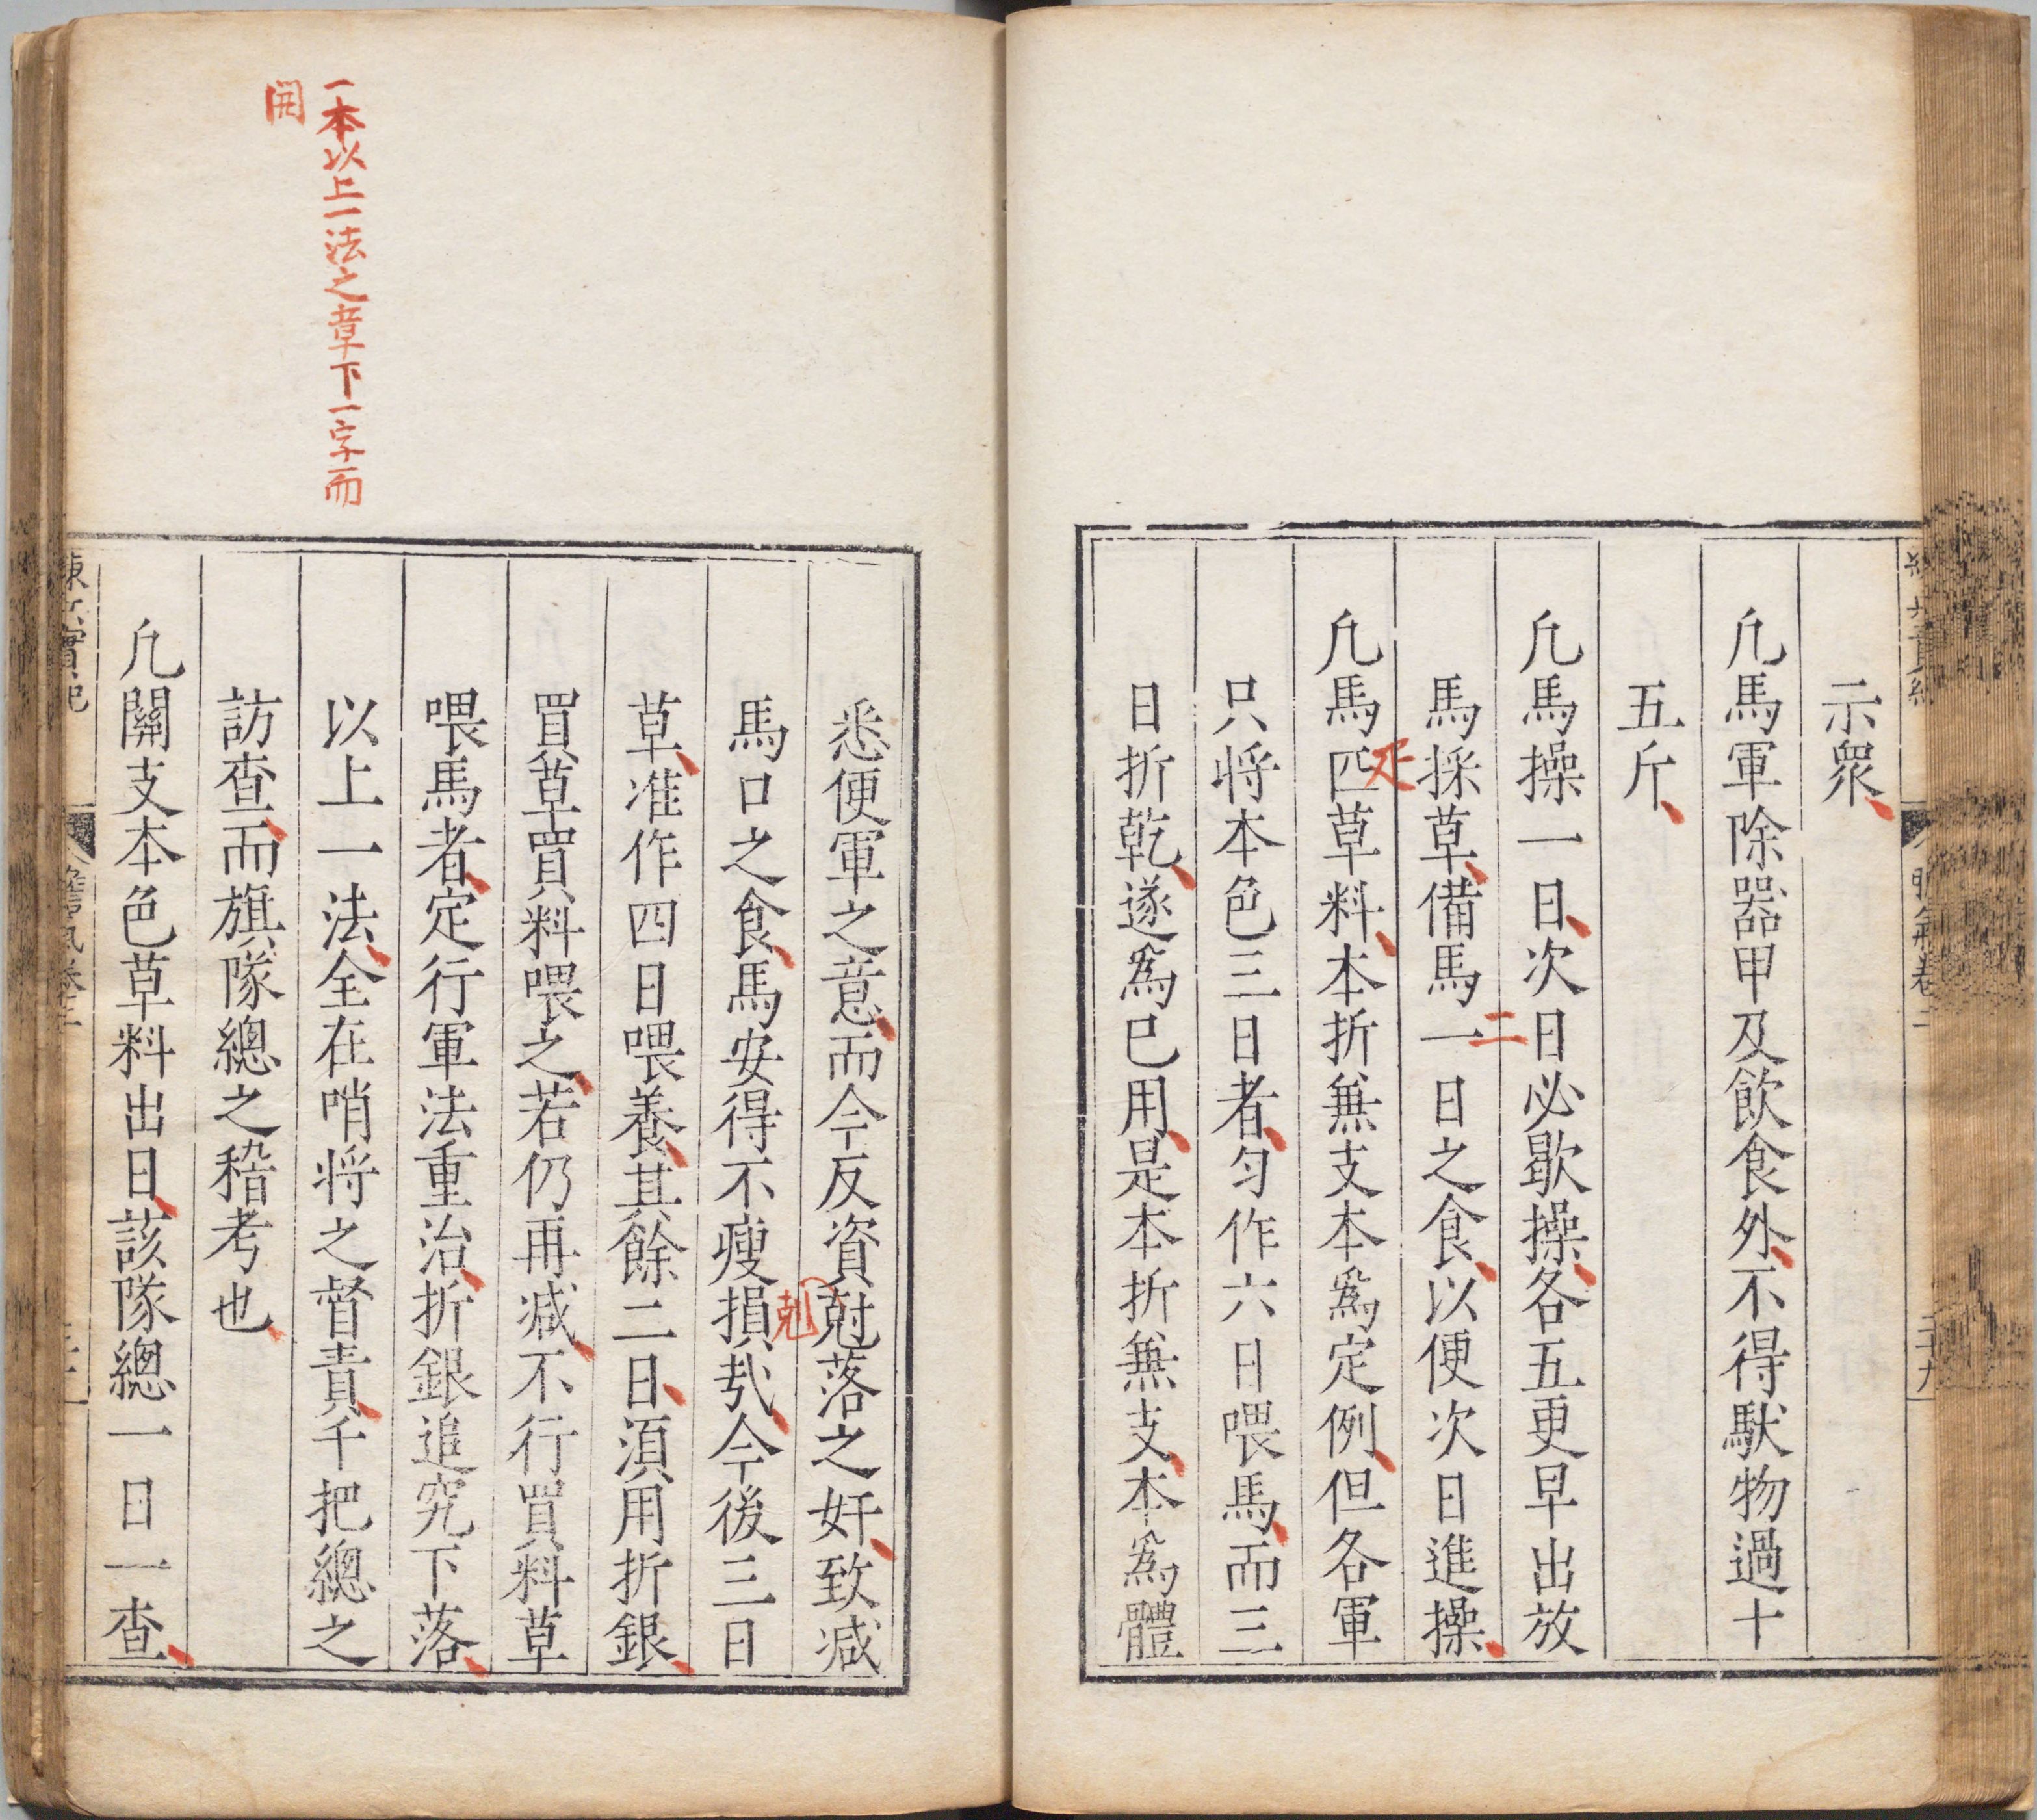 示衆
凢馬軍除器甲及飲食外不得馱物過十
五斤
凢馬操一日次日必歇操各五更早出放
馬採草備馬一日之食以便次日進操
二
凢馬匹草料本折兼支本爲定例但各軍
疋
只将本色三日者匀作六日喂馬而三
日折乾遂爲已用是本折兼支本爲體
悉便軍之意而今反資尅落之奸致减
剋
馬口之食馬安得不瘦損㢤今後三日
草准作四日喂養其餘二日湏用折銀
買草買料喂之若仍再减不行買料草
喂馬者定行軍法重治折銀追究下落
以上一法全在哨将之督責千把總之
訪查而旗隊總之稽考也
凢關支本色草料出日該隊總一日一查
一本以上一法之章下一字而
開